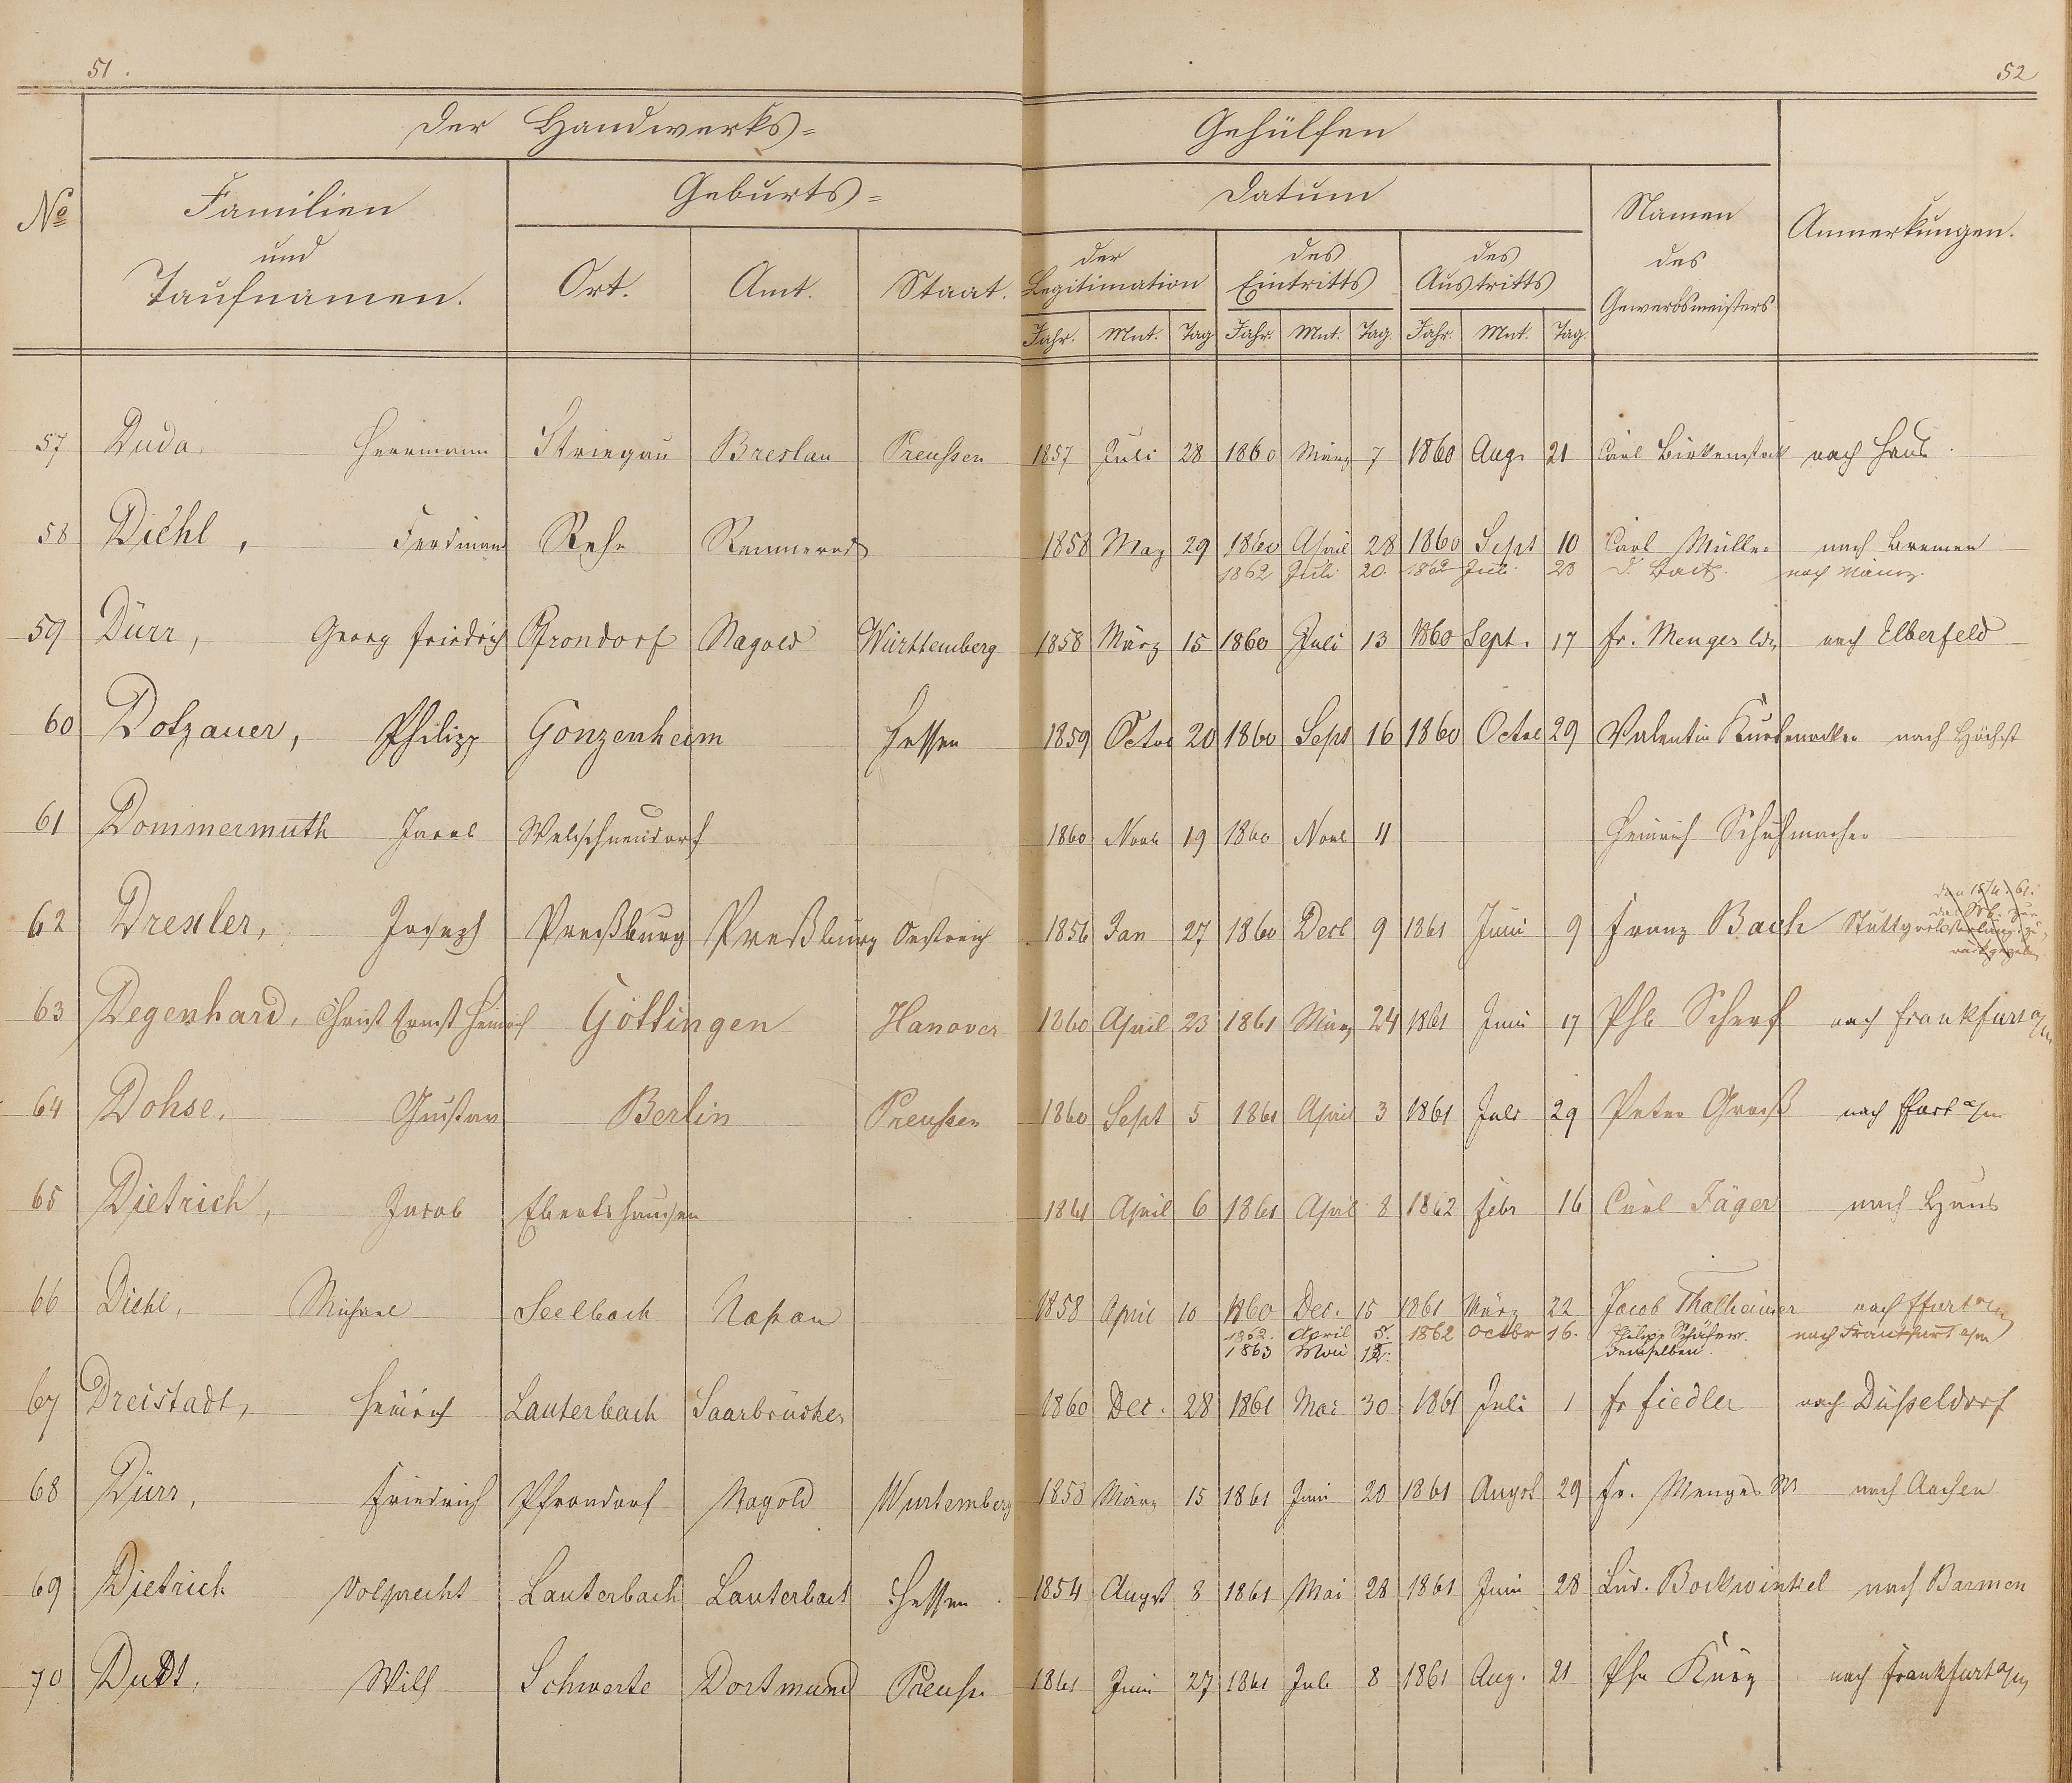 51.
52
Der Handwerks=
Gehülfen
No
Familien
und
Taufnamen.
Geburts=
Ort.
Amt.
Staat.
Datum
der
Legitimation
des
Eintritts
des
Austritts
Jahr. Mnt. Tag Jahr. Mnt. Tag. Jahr. Mnt. Tag.
Namen
des
Gewerbsmeisters
Anmerkungen.
57 Duda, Herrmann Striegau Breslau Preußen 1857 Juli 28 1860 März 7 1860 Aug. 21 Carl Birkenstock nach Haus
58 Diehl, Ferdinand Rehe Rennerod 1858 May 29 1860 April 28 1860 Sept 10 Carl Müller nach Bremen
1862 Juli 20. 1862 Juli 23 nach Mainz.
59 Dürr, Georg Friedrich Pfrondorf Nagold Württemberg 1858 März 15 1860 Juli 13 1860 Sept. 17 Fr. Menges nach Elberfeld
60 Dotzauer, Philipp Gonzenheim Hessen 1859 Octor 20 1860 Sept 16 1860 Octor 29 Valentin nach Höchst
61 Dommermuth Jacob Welschneudorf 1860 Novb 19 1860 Novb 11 Heinrich Schuhmacher
62 Drexler, Joseph Preßburg Preßburg Oestreich 1856 Jan 27 1860 Decb 9 1861 Juni 9 Franz Bach
63 Degenhard, Christ Ernst Heinrich Göttingen Hanover 1860 April 23 1861 März 24 1861 Juni 17 Phil Scherf nach Frankfurt a/m
64 Dohse, Gustav Berlin Preußen 1860 Sept 5 1861 April 3 1861 Juli 29 Peter Groß nach Ffurt a/m
65 Dietrich, Jacob Ebertshausen 1861 April 6 1861 April 8 1862 Febr 16 Carl Jäger nach Haus
66 Diehl, Michael Seelbach Naßau 1858 April 10 1860 Dec. 15 1861 März 22 Jacob Thalheimer nach Ffurt a/m
1862. April 5. 1862 Octbr 16. Philipp Schäfer. nach Frankfurt a/m
1863 Mai demselben.
67 Dreistadt, Heinrich Lauterbach Saarbrücken 1860 Dec. 28 1861 Mai 30 1861 Juli 1 Fr Fiedler nach Düßeldorf
68 Dürr, Friedrich Pfrondorf Nagold Wurtemberg 1858 März 15 1861 Juni 20 1861 Augst 29 Fr. Menges nach Aachen
69 Dietrich Volprecht Lauterbach Lauterbach Hessen 1854 Augst 8 1861 Mai 28 1861 Juni 28 Lud. Bockwinkel nach Barmen
70 Dudt, Wilh Schwerte Dortmund Preuße 1861 Juni 27 1861 Juli 8 1861 Aug. 21 Phil Kurz nach Frankfurt a/m